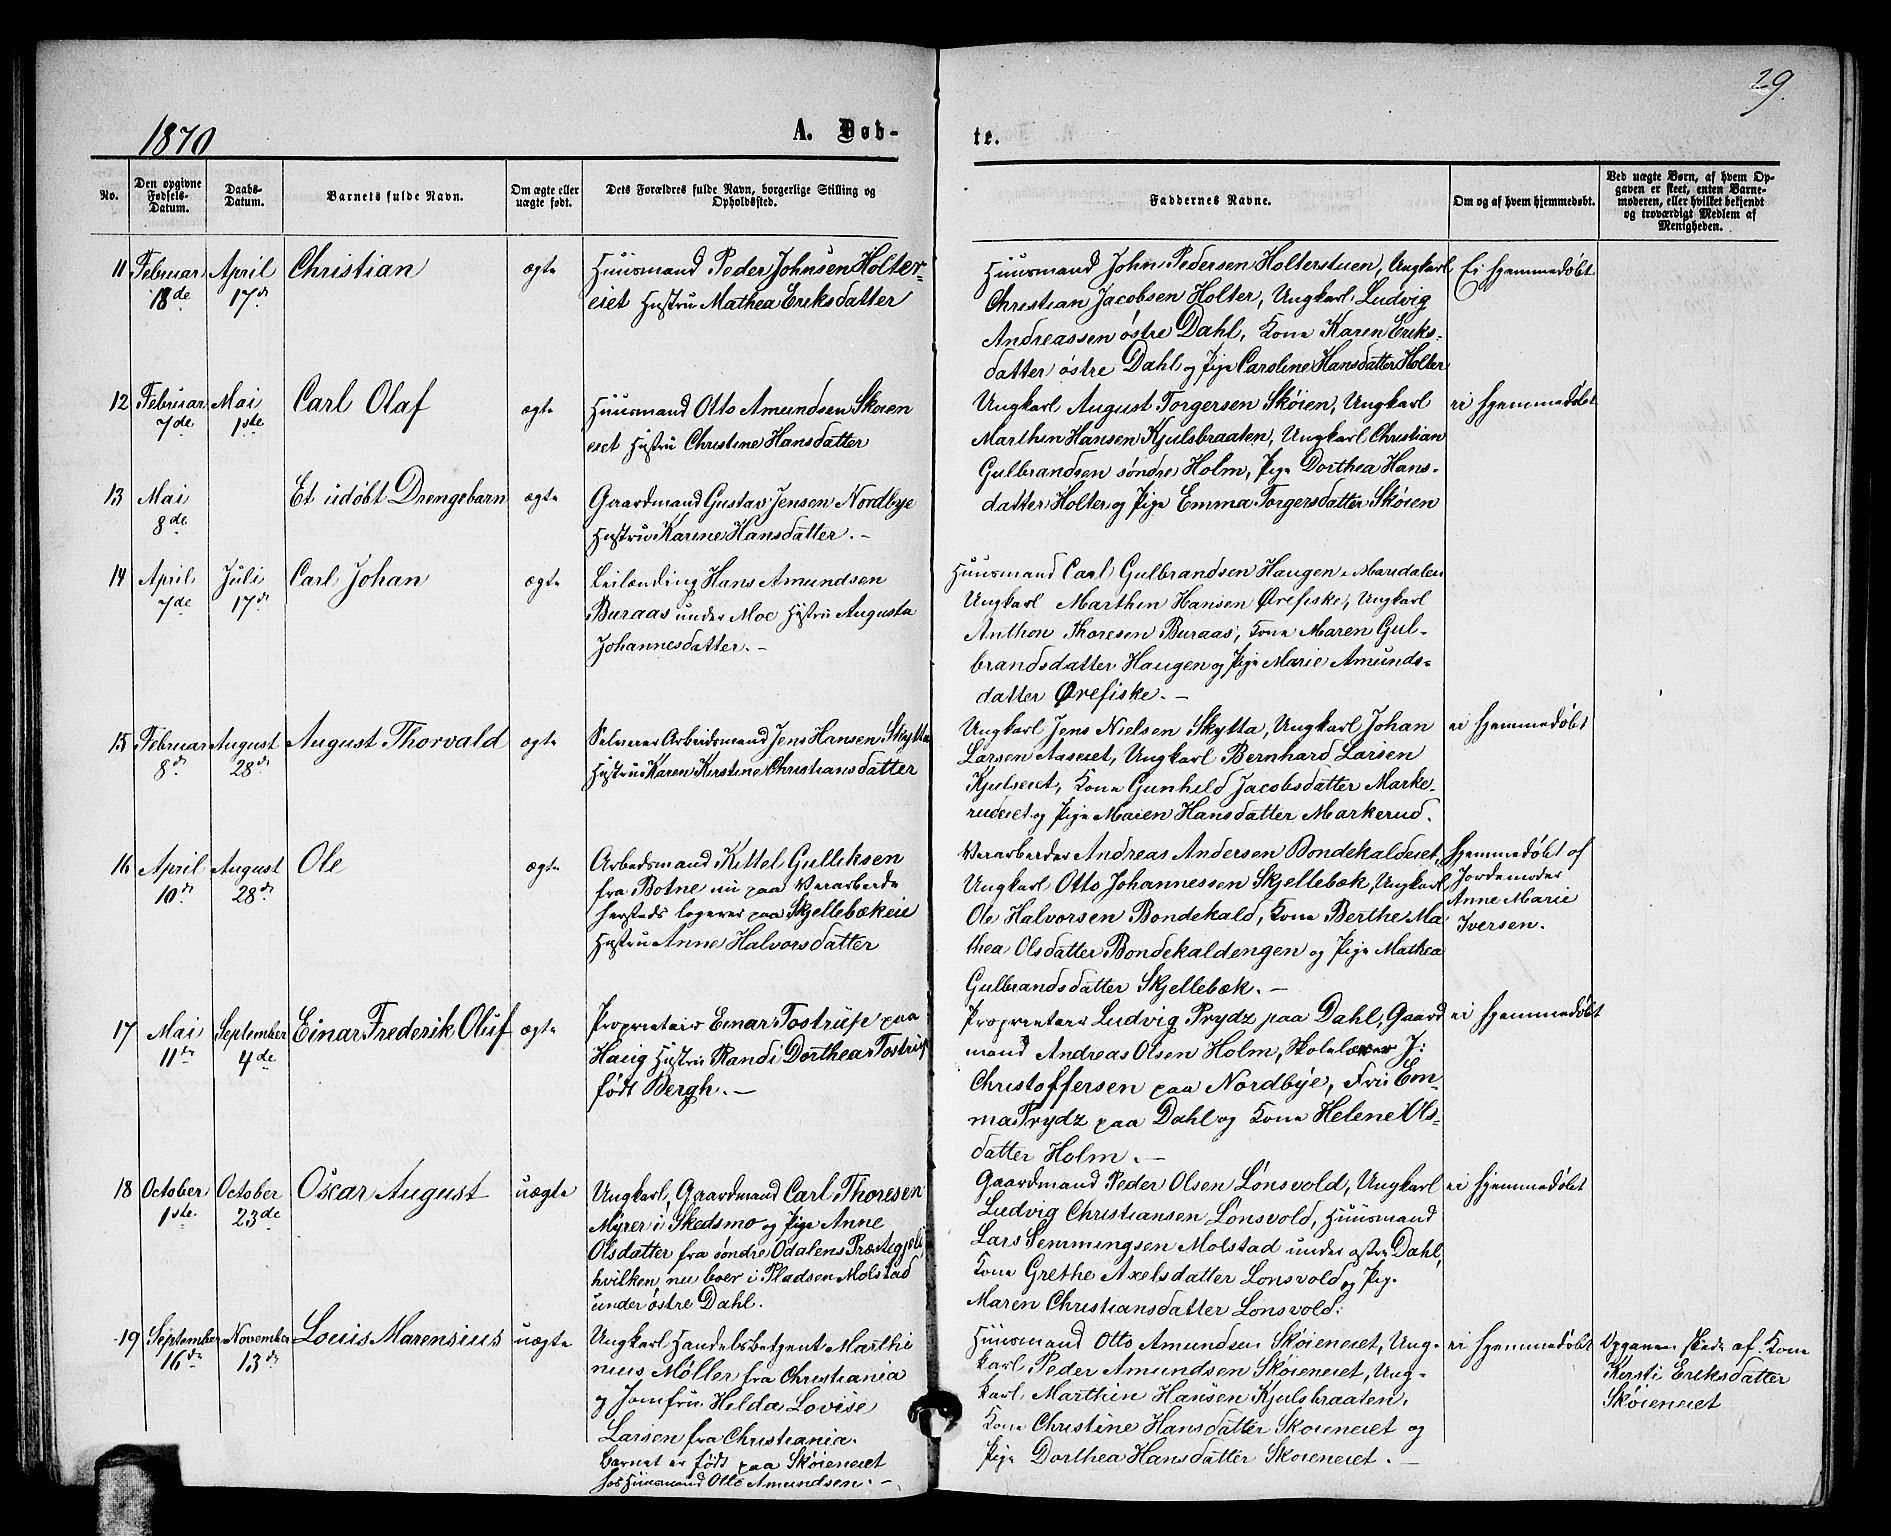 29.
1870
A. Døb-
te.
No.
Den opgivne Fødsels-Datum.
Daabs-Datum.
Barnets fulde Navn.
Om ægte eller uægte født.
Dets Forældres fulde Navn, borgerlige Stilling og Opholdssted.
Faddernes Navne.
Om og af hvem hjemmedøbt.
Ved uægte Børn, af hvem Opgaven er skeet, enten Barnemoderen, eller hvilket bekjendt og troværdigt Medlem af Menigheden.
11 Februar 18de April 17de Christian ægte
Huusmand Peder Johnsen Holter-
eiet Hustru Mathea Eriksdatter
Huusmand John Pedersen Holterstuen, Ungkarl
Christian Jacobsen Holter, Ungkarl Ludvig
Andreassen østre Dahl, Kone Karen Eriks-
datter østre Dahl og Pige Caroline Hansdatter Holter
Ei hjemmedøbt
12 Februar 7de Mai 1ste Carl Olaf ægte
Huusmand Otto Amundsen Skøien
eiet Hustru Christine Hansdatter
Ungkarl August Torgersen Skøien, Ungkarl
Marthin Hansen Kjulsbraaten, Ungkarl Christian
Gulbrandsen søndre Holm, Pige Dorthea Hans-
datter Holter og Pige Emma Torgersdatter Skøien
ei hjemmedøbt
13 Mai 8de Et udøbt Drengebarn ægte
Gaardmand Gustav Jensen Nordbye
Hustru Karine Hansdatter. -
14 April 7de Juli 17de Carl Johan ægte
Leilænding Hans Amundsen
Buraas under Moe Hustru Augusta
Johannesdatter. -
Huusmand Carl Gulbrandsen Haugen i Maridalen
Ungkarl Marthin Hansen Ørefiske, Ungkarl
Anthon Thoresen Buraas, Kone Maren Gul-
brandsdatter Haugen og Pige Marie Amunds-
datter Ørefiske. -
15 Februar 8de August 28de August Thorvald ægte
Selveier Arbeidsmand Jens Hansen Skytta
Hustru Karen Kirstine Christiansdatter
Ungkarl Jens Nielsen Skytta, Ungkarl Johan
Larsen Aaseiet, Ungkarl Bernhard Larsen
Kjulseiet, Kone Gunhild Jacobsdatter Marke-
rudeiet og Pige Maren Hansdatter Markerud.
ei hjemmedøbt
16 April 10de August 28de Ole ægte
Arbeidsmand Kittel Gulliksen
fra Botne nu paa Veiarbeide
hersteds logerer paa Skjellebækeie
Hustru Anne Halvorsdatter
Veiarbeider Andreas Andersen Bondekaldeiet,
Ungkarl Otto Johannessen Skjellebæk, Ungkarl
Ole Halvorsen Bondekald, Kone Berthe Ma-
thea Olsdatter Bondekaldengen og Pige Mathea
Gulbrandsdatter Skjellebæk. -
hjemmedøbt af
Jordemoder
Anne Marie
Iversen.
17 Mai 11te September 4de Einar Frederik Oluf ægte
Proprietair Einar Tostrup paa
Haug Hustru Randi Dorthea Tostrup
født Bergh. -
Proprietair Ludvig Prydz paa Dahl, Gaard
mand Andreas Olsen Holm, Skolelærer J:
Christoffersen paa Nordbye, Fru Em-
ma Prydz paa Dahl og Kone Helene Ols-
datter Holm. -
ei hjemmedøbt
18 October 1ste October 23de Oscar August uægte
Ungkarl, Gaardmand Carl Thoresen
Myrer i Skedsmo og Pige Anne
Olsdatter fra søndre Odalens Præstegjeld
hvilken nu boer i Pladsen Molstad
under østre Dahl.
Gaardmand Peder Olsen Lønsvold, Ungkarl
Ludvig Christiansen Lonsvold, Huusmand
Lars Semmingsen Molstad under østre Dahl,
Kone Grethe Axelsdatter Lonsvold og Pige
Maren Christiansdatter Lonsvold.
ei hjemmedøbt
19 September 16de November 13de Louis Marensius uægte
Ungkarl Handelsbetjent Marthi
nius Møller fra Christiania
og Jomfru Hilda Lovise
Larsen fra Christiania.
Barnet er født paa Skøieneiet
hos Huusmand Otto Amundsen. -
Huusmand Otto Amundsen Skøieneiet, Ung-
karl Peder Amundsen Skøieneiet, Ung-
karl Marthin Hansen Kjulsbraaten,
Kone Christine Hansdatter Skøieneiet og
Pige Dorthea Hansdatter Skøieneiet. -
ei hjemmedøbt
Opgaven skede af Kone
Kirsti Eriksdatter
Skøieneiet